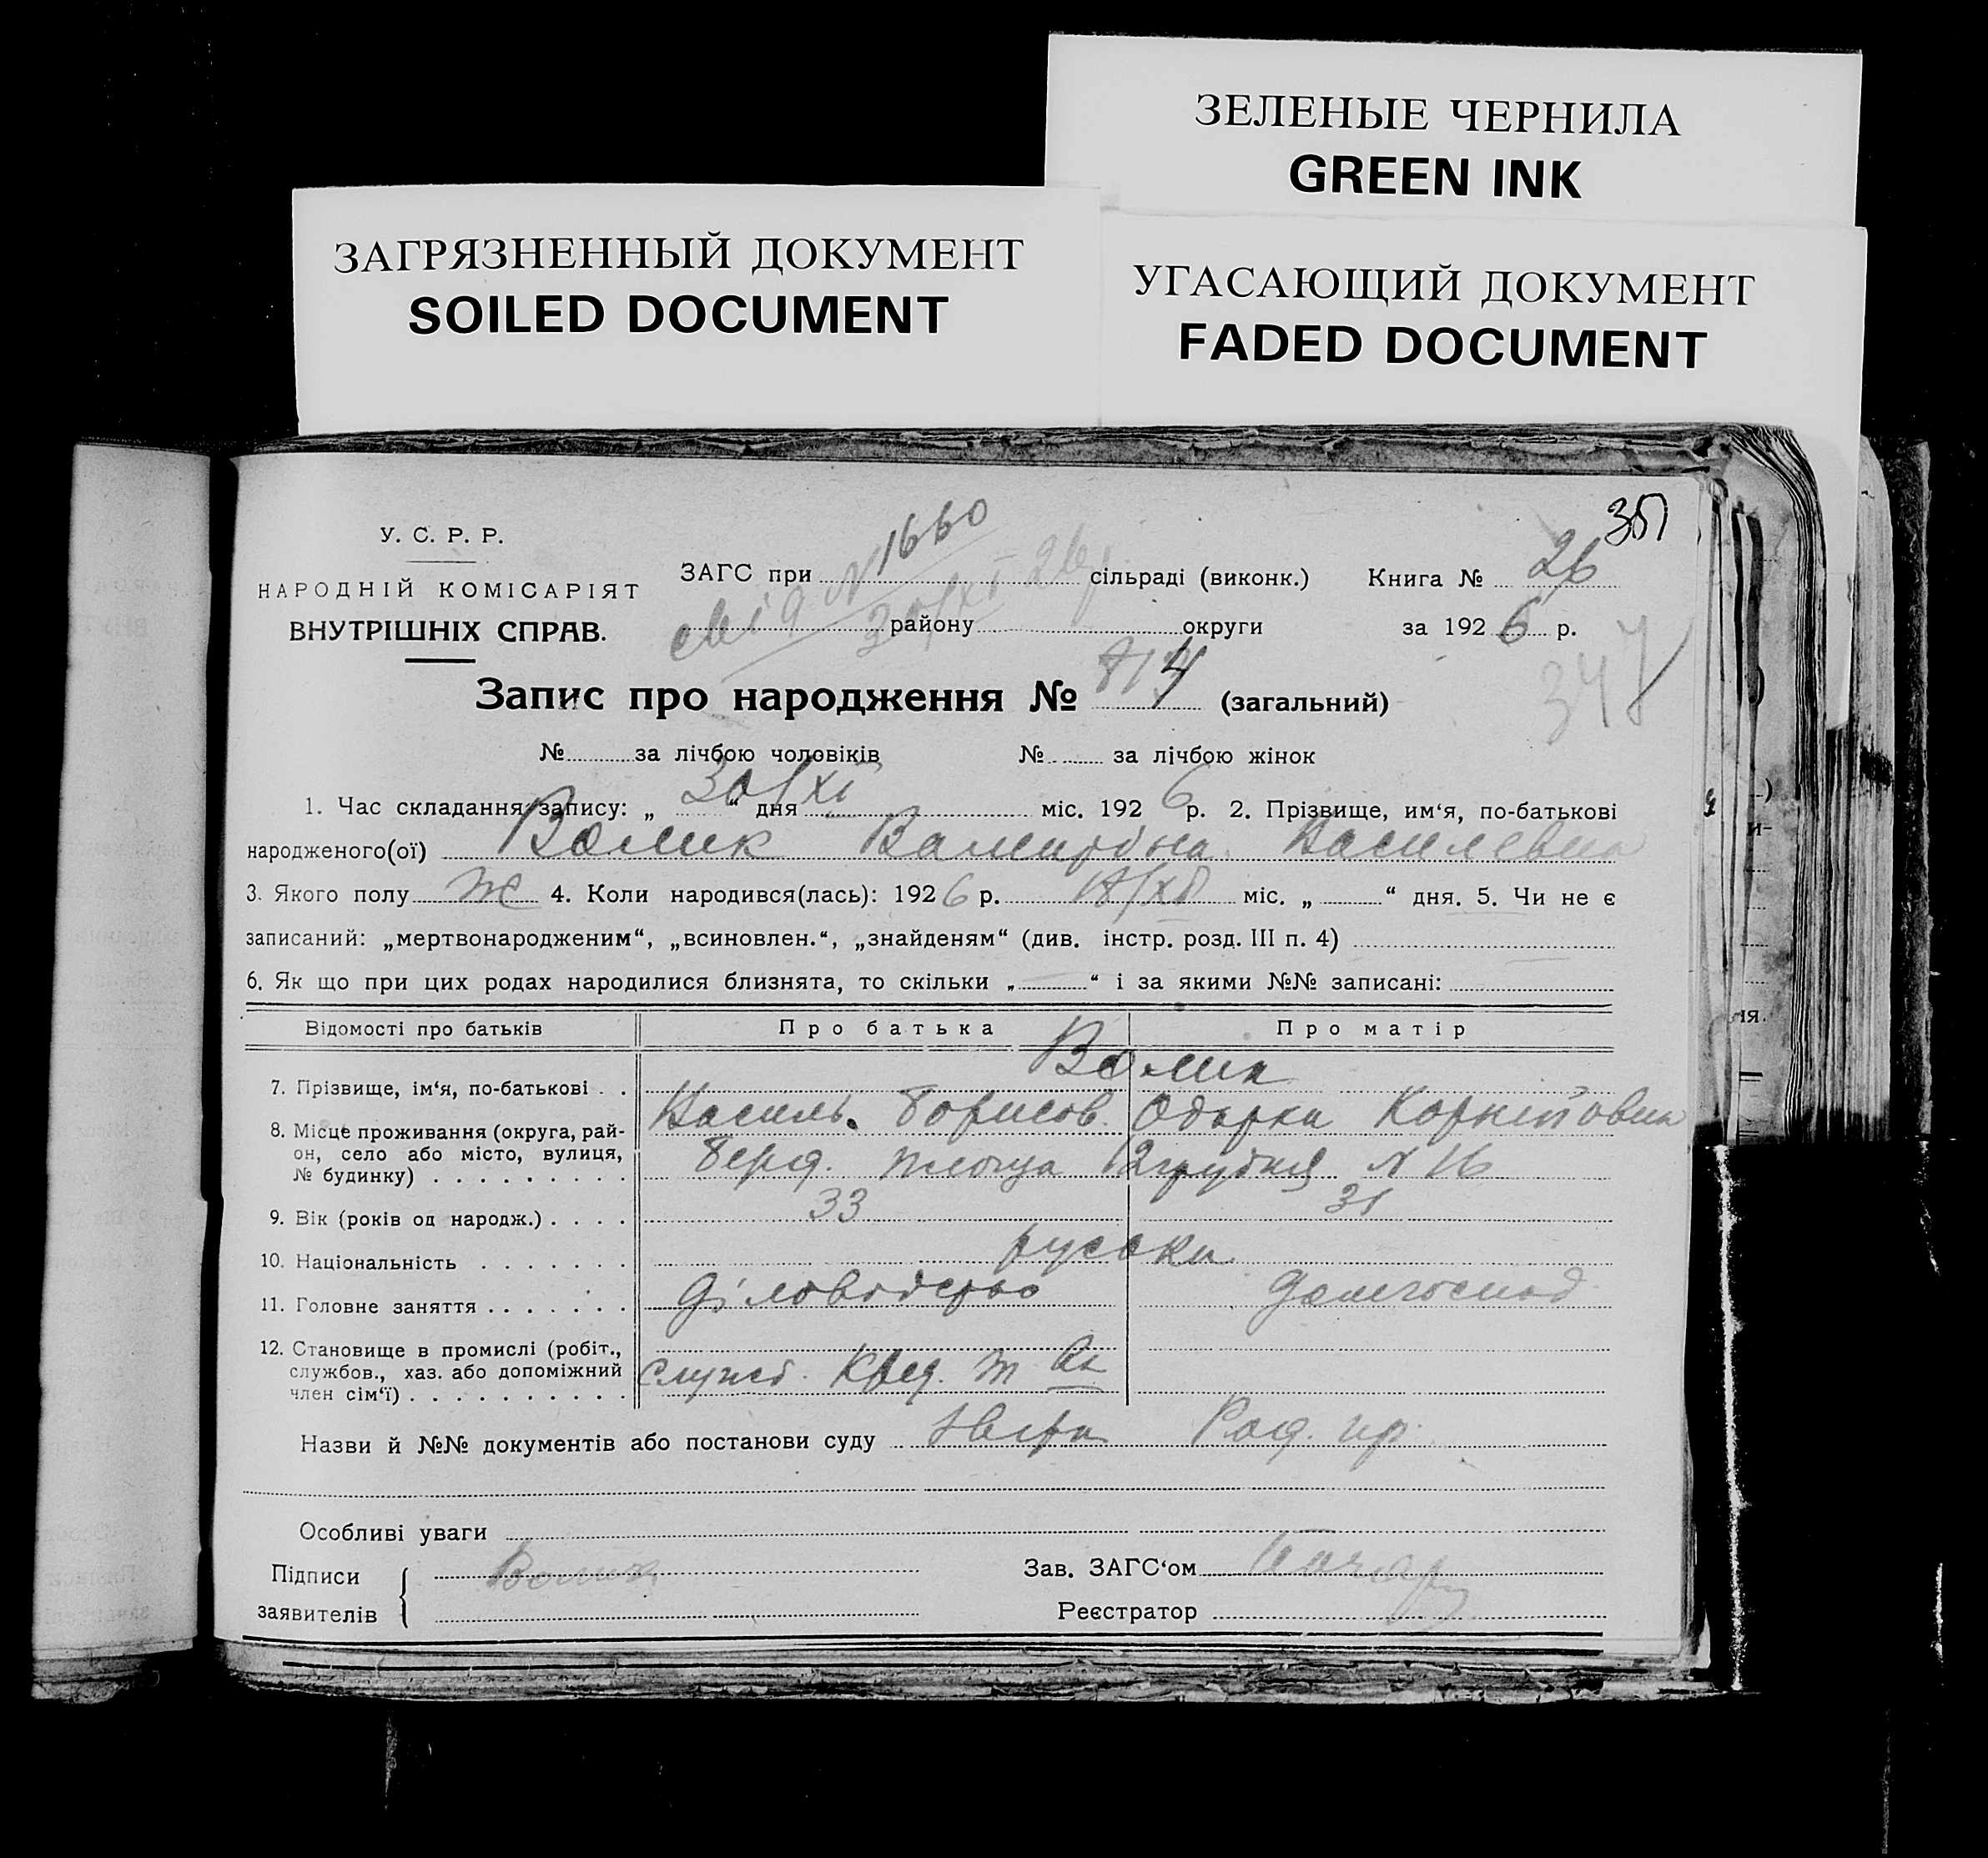 ЗЕЛЕНЫЕ ЧЕРНИЛА
GREEN INK
ЗАГРЯЗНЕННЫЙ ДОКУМЕНТ
SOILED DOCUMENT
УГАСАЮЩИЙ ДОКУМЕНТ
FADED DOCUMENT
351
У. С. Р. Р.
НАРОДНІЙ КОМІСАРІЯТ
ВНУТРІШНІХ СПРАВ.
ЗАГС при N 1660 сільраді (виконк.) Книга № 26
району округи за 1926 р.
347
Запис про народження № 814 (загальний)
№ за лічбою чоловіків № за лічбою жінок
1. Час складання запису: „ 30/XI “ дня міс. 1926 р. 2. Прізвище, им‘я, по-батькові
народженого(ої) Волик Василевна
3. Якого полу ж 4. Коли народився(лась): 1926 р. міс. „ “ дня. 5. Чи не є
записаний: „мертвонародженим“, „всиновлен.“, „знайденям“ (див. інстр. розд. III п. 4)
6. Як що при цих родах народилися близнята, то скільки „ “ і за якими №№ записані:
Відомості про батьків Про батька Про матір
7. Прізвище, ім‘я, по-батькові . . Волик
Василь Борисов. Одарка Корнійовна
8. Місце проживання (округа, рай-
он, село або місто, вулиця,
№ будинку) . . . . . . . . . Берд. площа 12 грудня N 16
9. Вік (років од народж.) . . . . 33 31
10. Національність . . . . . . . руська
11. Головне заняття . . . . . . . діловодство домгоспод
12. Становище в промислі (робіт.,
службов., хаз. або допоміжний
член сім‘ї) . . . . . . . . . . служб. Кред. т
Назви й №№ документів або постанови суду
Особливі уваги
Підписи Волик Зав. ЗАГС‘ом
заявителів Реєстратор